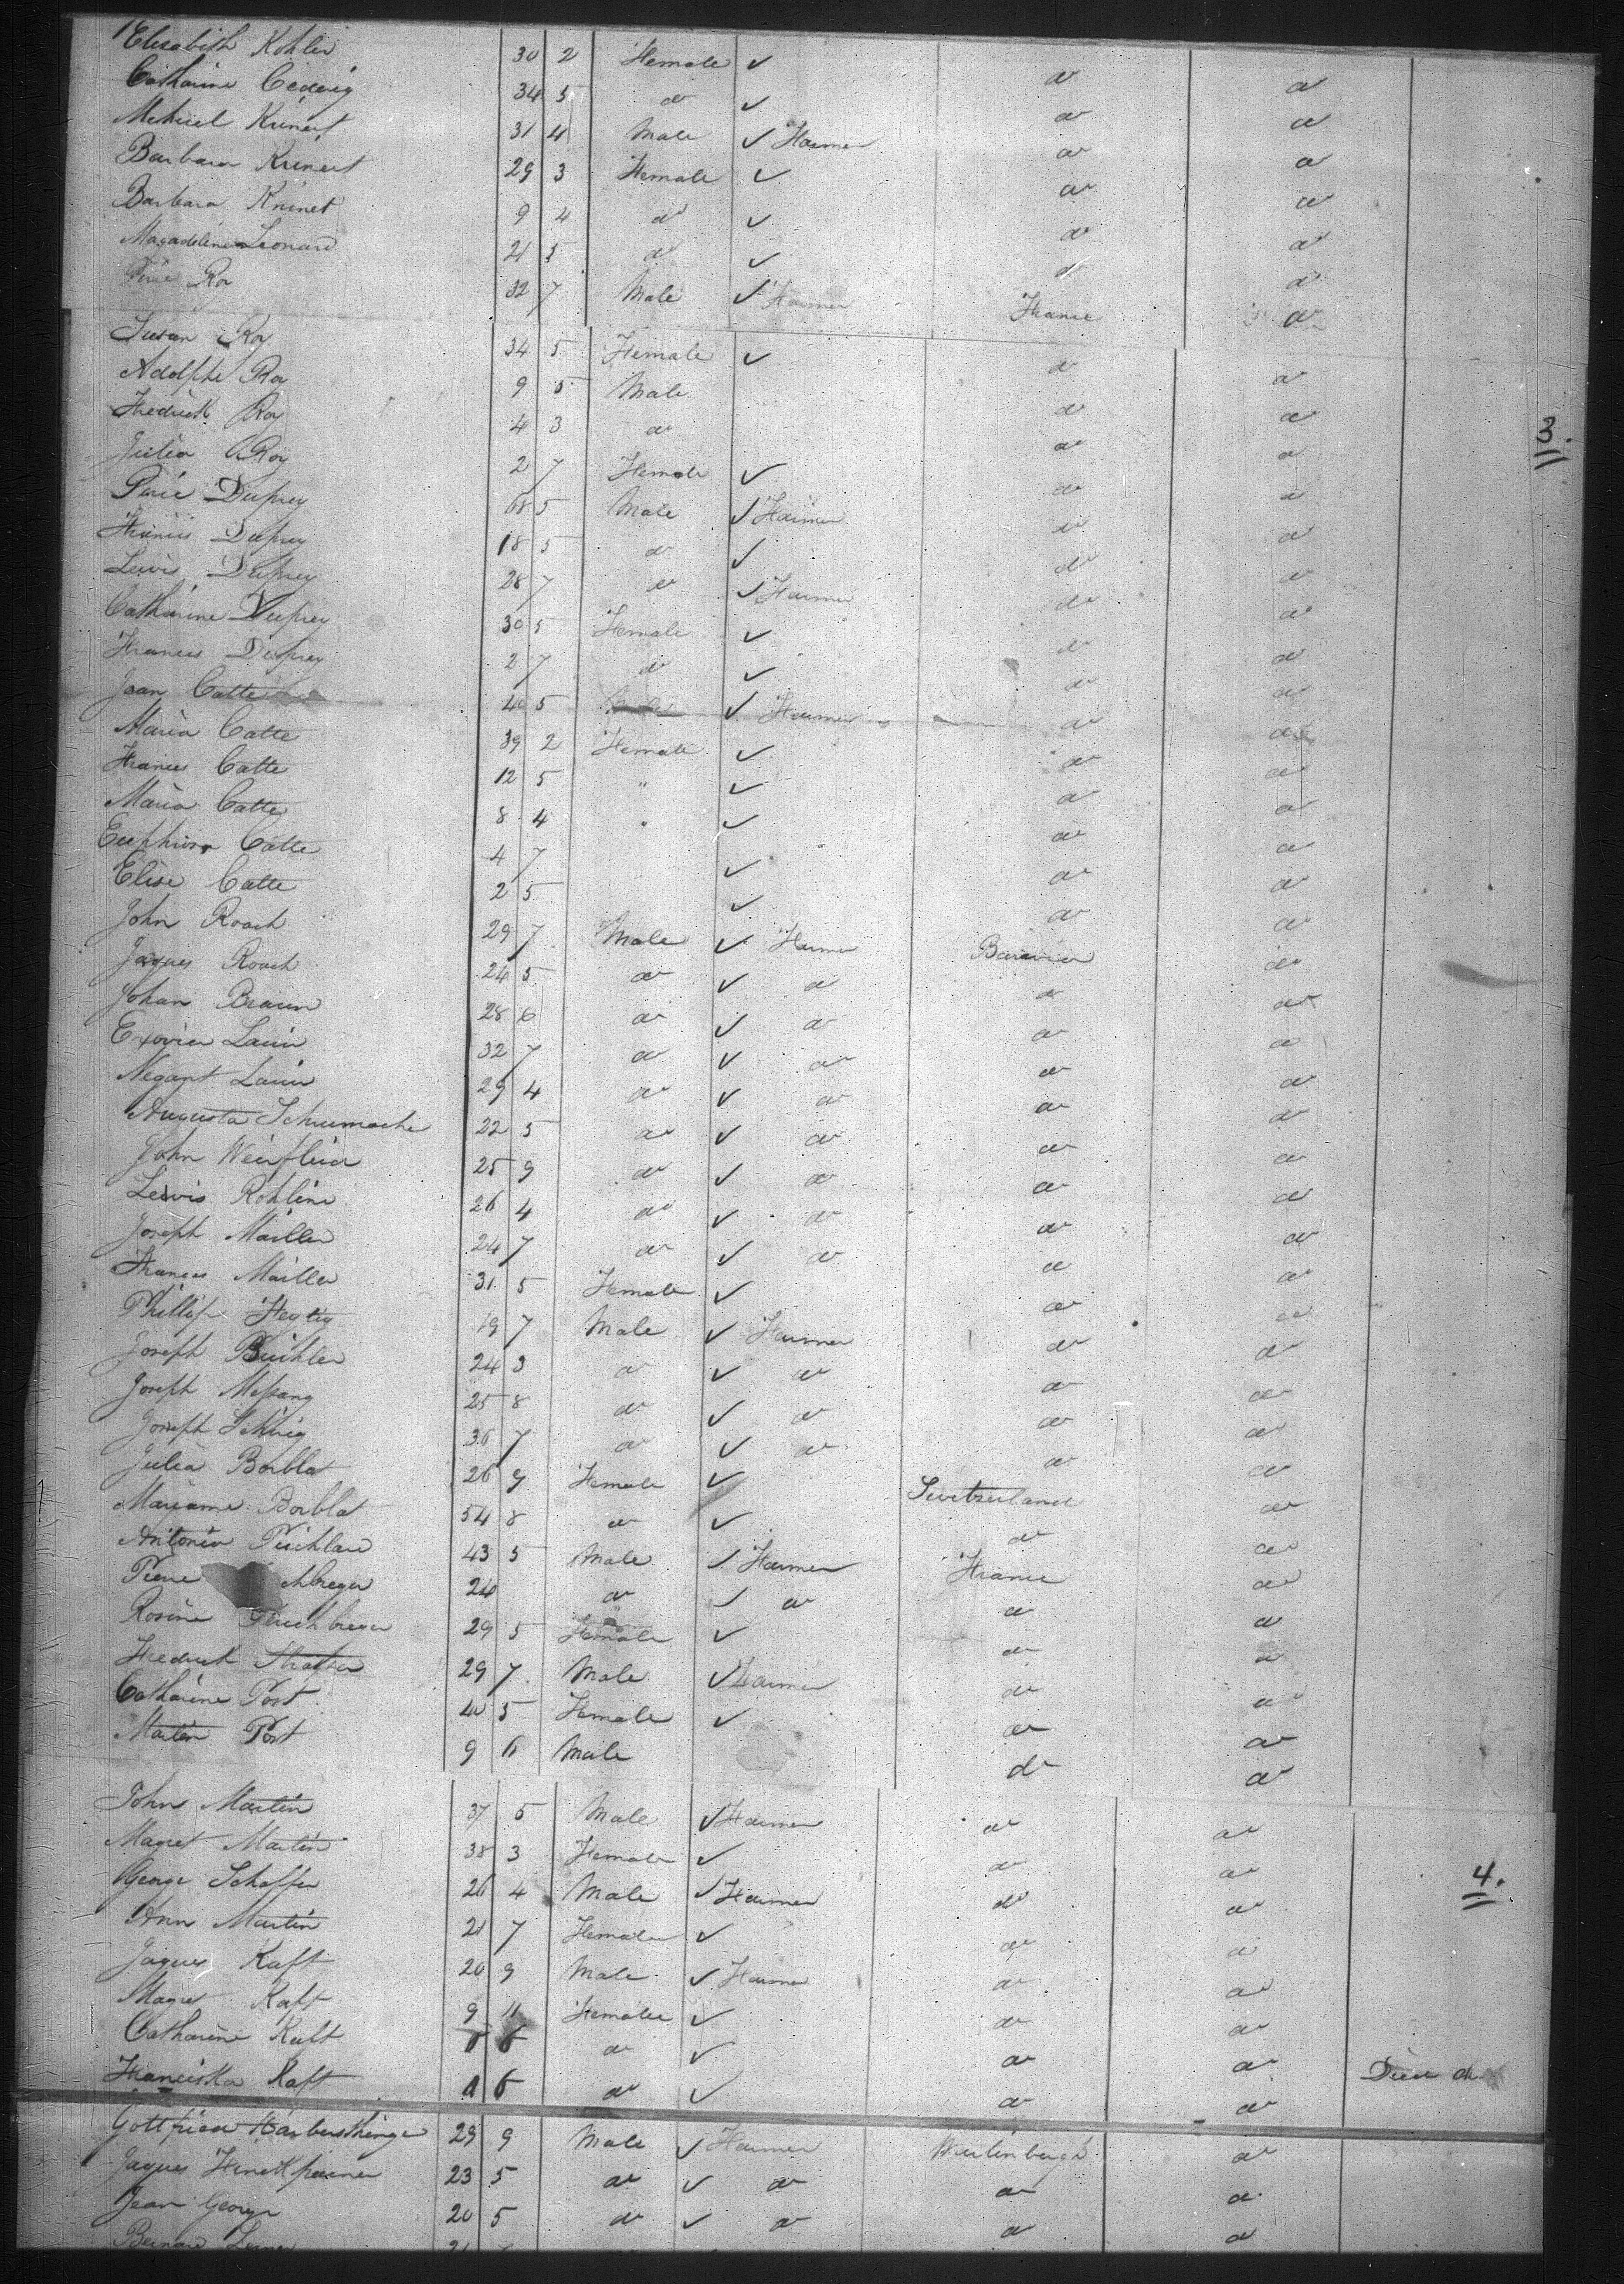 Elisabith Kohler 30 2 Female ✓ do do
Catharine Cedevig 34 5 do ✓ do do
Michiel Krinert 31 4 Male ✓ Farmer do do
Barbara Krinert 29 3 Female ✓ do do
Barbara Krinet 9 4 do ✓ do do
Magadeline Leonard 21 5 do ✓ do do
Roy 32 7 Male ✓ Farmer France do
Susan Roy 34 5 Female ✓ do do
Adolphe Roy 9 5 Male do do
Fredrick Roy 4 3 do do do
Julia Roy 2 7 Female ✓ do do
3.
Pierie Duprey 68 5 Male ✓ Farmer do do
Francis Duprey 18 5 do ✓ do do
Lewis Duprey 28 7 do ✓ Farmer do do
Catharine Duprey 30 5 Female ✓ do do
Frances Duprey 2 7 do ✓ do do
Jean Catte 40 5 Male ✓ Farmer do do
Maria Catte 39 2 Female ✓ do do
Frances Catte 12 5 " ✓ do do
Maria Catte 8 4 " ✓ do do
Euphrisr Catte 4 7 ✓ do do
Elise Catte 2 5 ✓ do do
John Roach 29 7 Male ✓ Farmer Bavaria do
Jaques Roach 24 5 do ✓ do do do
Johan Braun 28 6 do ✓ do do do
Exovier Lauir 32 7 do ✓ do do do
Negant Lauir 29 4 do ✓ do do do
Augusta Schumache 22 5 do ✓ do do do
John Weisflier 25 9 do ✓ do do do
Lewis Rohline 26 4 do ✓ do do do
Joseph Mailler 24 7 do ✓ do do do
Frances Mailler 31 5 Female ✓ do do
Phillip Heylig 19 7 Male ✓ Farmer do do
Joseph Buihler 24 3 do ✓ do do do
Joseph Messang 25 8 do ✓ do do do
Joseph Schrig 36 7 do ✓ do do do
Julia Borblat 26 9 Female ✓ Switzerland do
Mariame Borblat 54 8 do ✓ do do
Antonio Puihlare 43 5 Male ✓ Farmer France do
Piere 24 do ✓ do do do
Rosine 29 5 Female ✓ do do
Fredrick Shaffer 29 7 Male ✓ Farmer do do
Catharine Port 40 5 Female ✓ do do
Martin Port 9 6 Male do do
John Martin 37 5 Male ✓ Farmer do do
Magret Martin 38 3 Female ✓ do do
4.
George Schaffer 26 4 Male ✓ Farmer do do
Ann Martin 21 7 Female ✓ do do
Jaques Kaft 20 9 Male ✓ Farmer do do
Magret Kaft 9 11 Female ✓ do do
Catharine Kaft 6 do ✓ do do
Franciska Kaft 1 6 do ✓ do do
Gottfried 29 9 Male ✓ Farmer Wurtinbergh do
Jaques 23 5 do ✓ do do do
Jean George 20 5 do ✓ do do do
Bernard